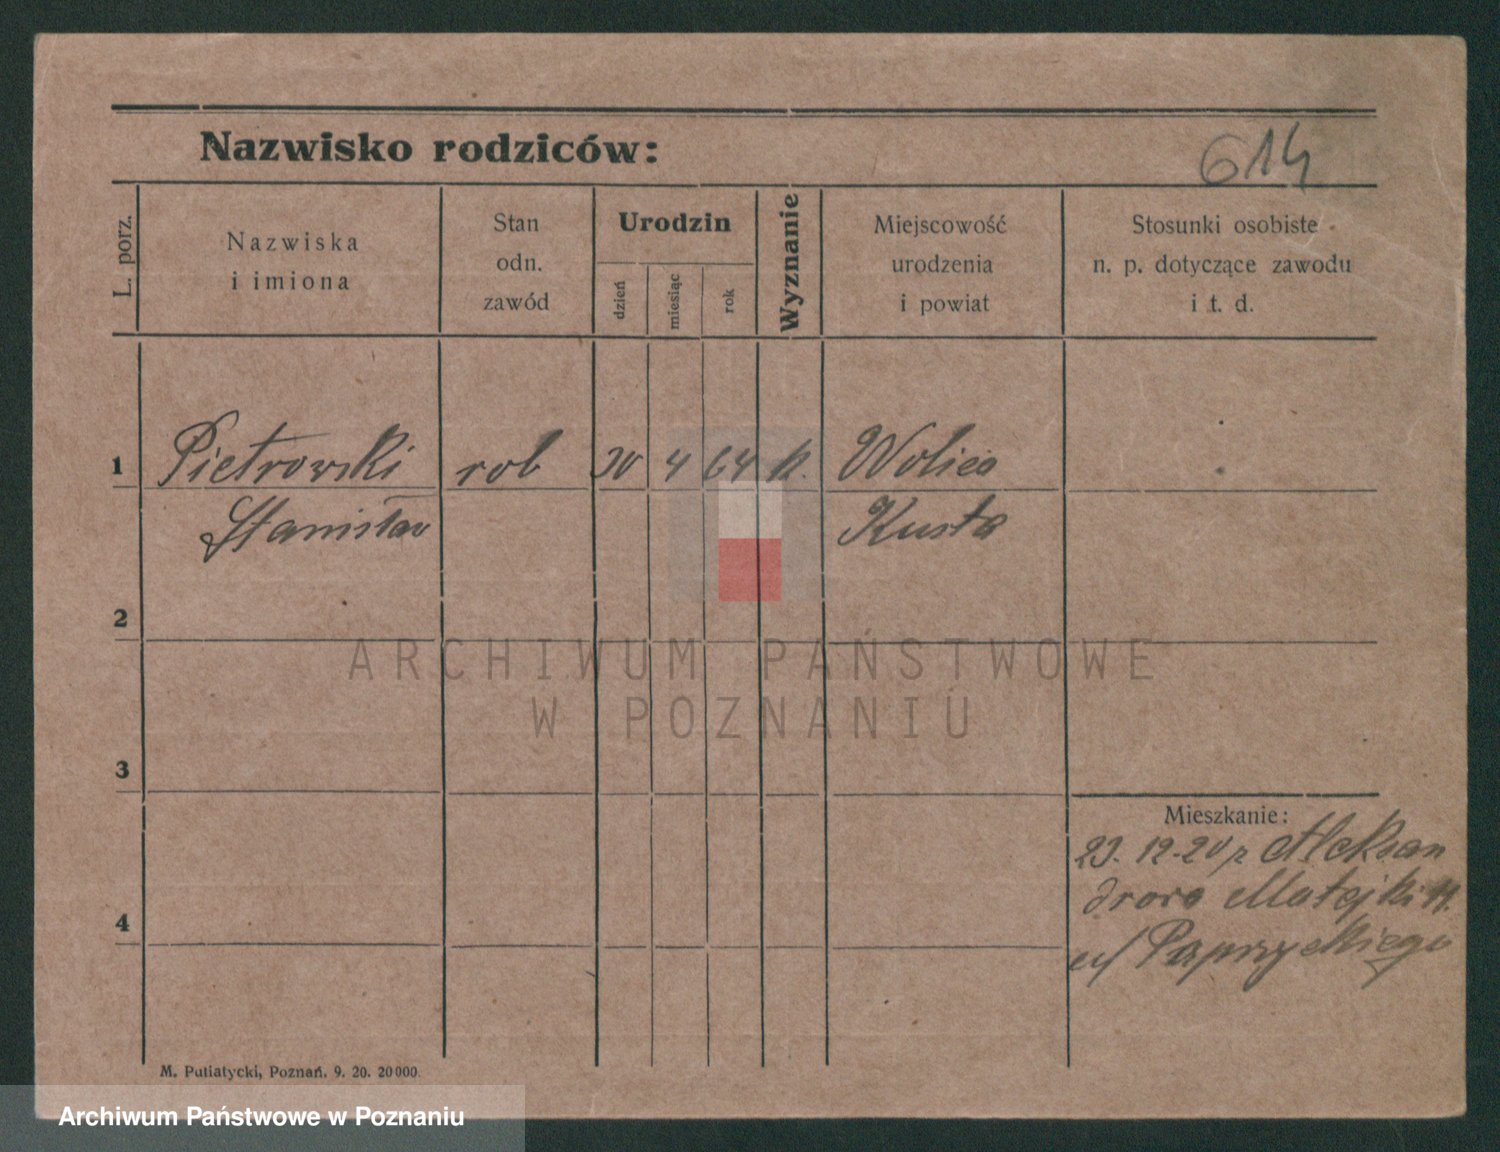 Nazwisko rodziców:
614
L. porz.
Nazwiska
i imiona
Stan
odn.
zawód
Urodzin
dzień
miesiąc
rok
Wyznanie
Miejscowość
urodzenia
i powiat
Stosunki osobiste
n. p. dotyczące zawodu
i t. d.
1 Pietrowski rob 30 4 64 k. Wolica
Stanisław
2
ARCHIWUM PAŃSTWOWE
W POZNANIU
3
Mieszkanie:
23. 12-20
Matejki
4
u/ Paprzyckiego
M. Putiatycki, Poznań. 9. 20. 20000.
Archiwum Państwowe w Poznaniu